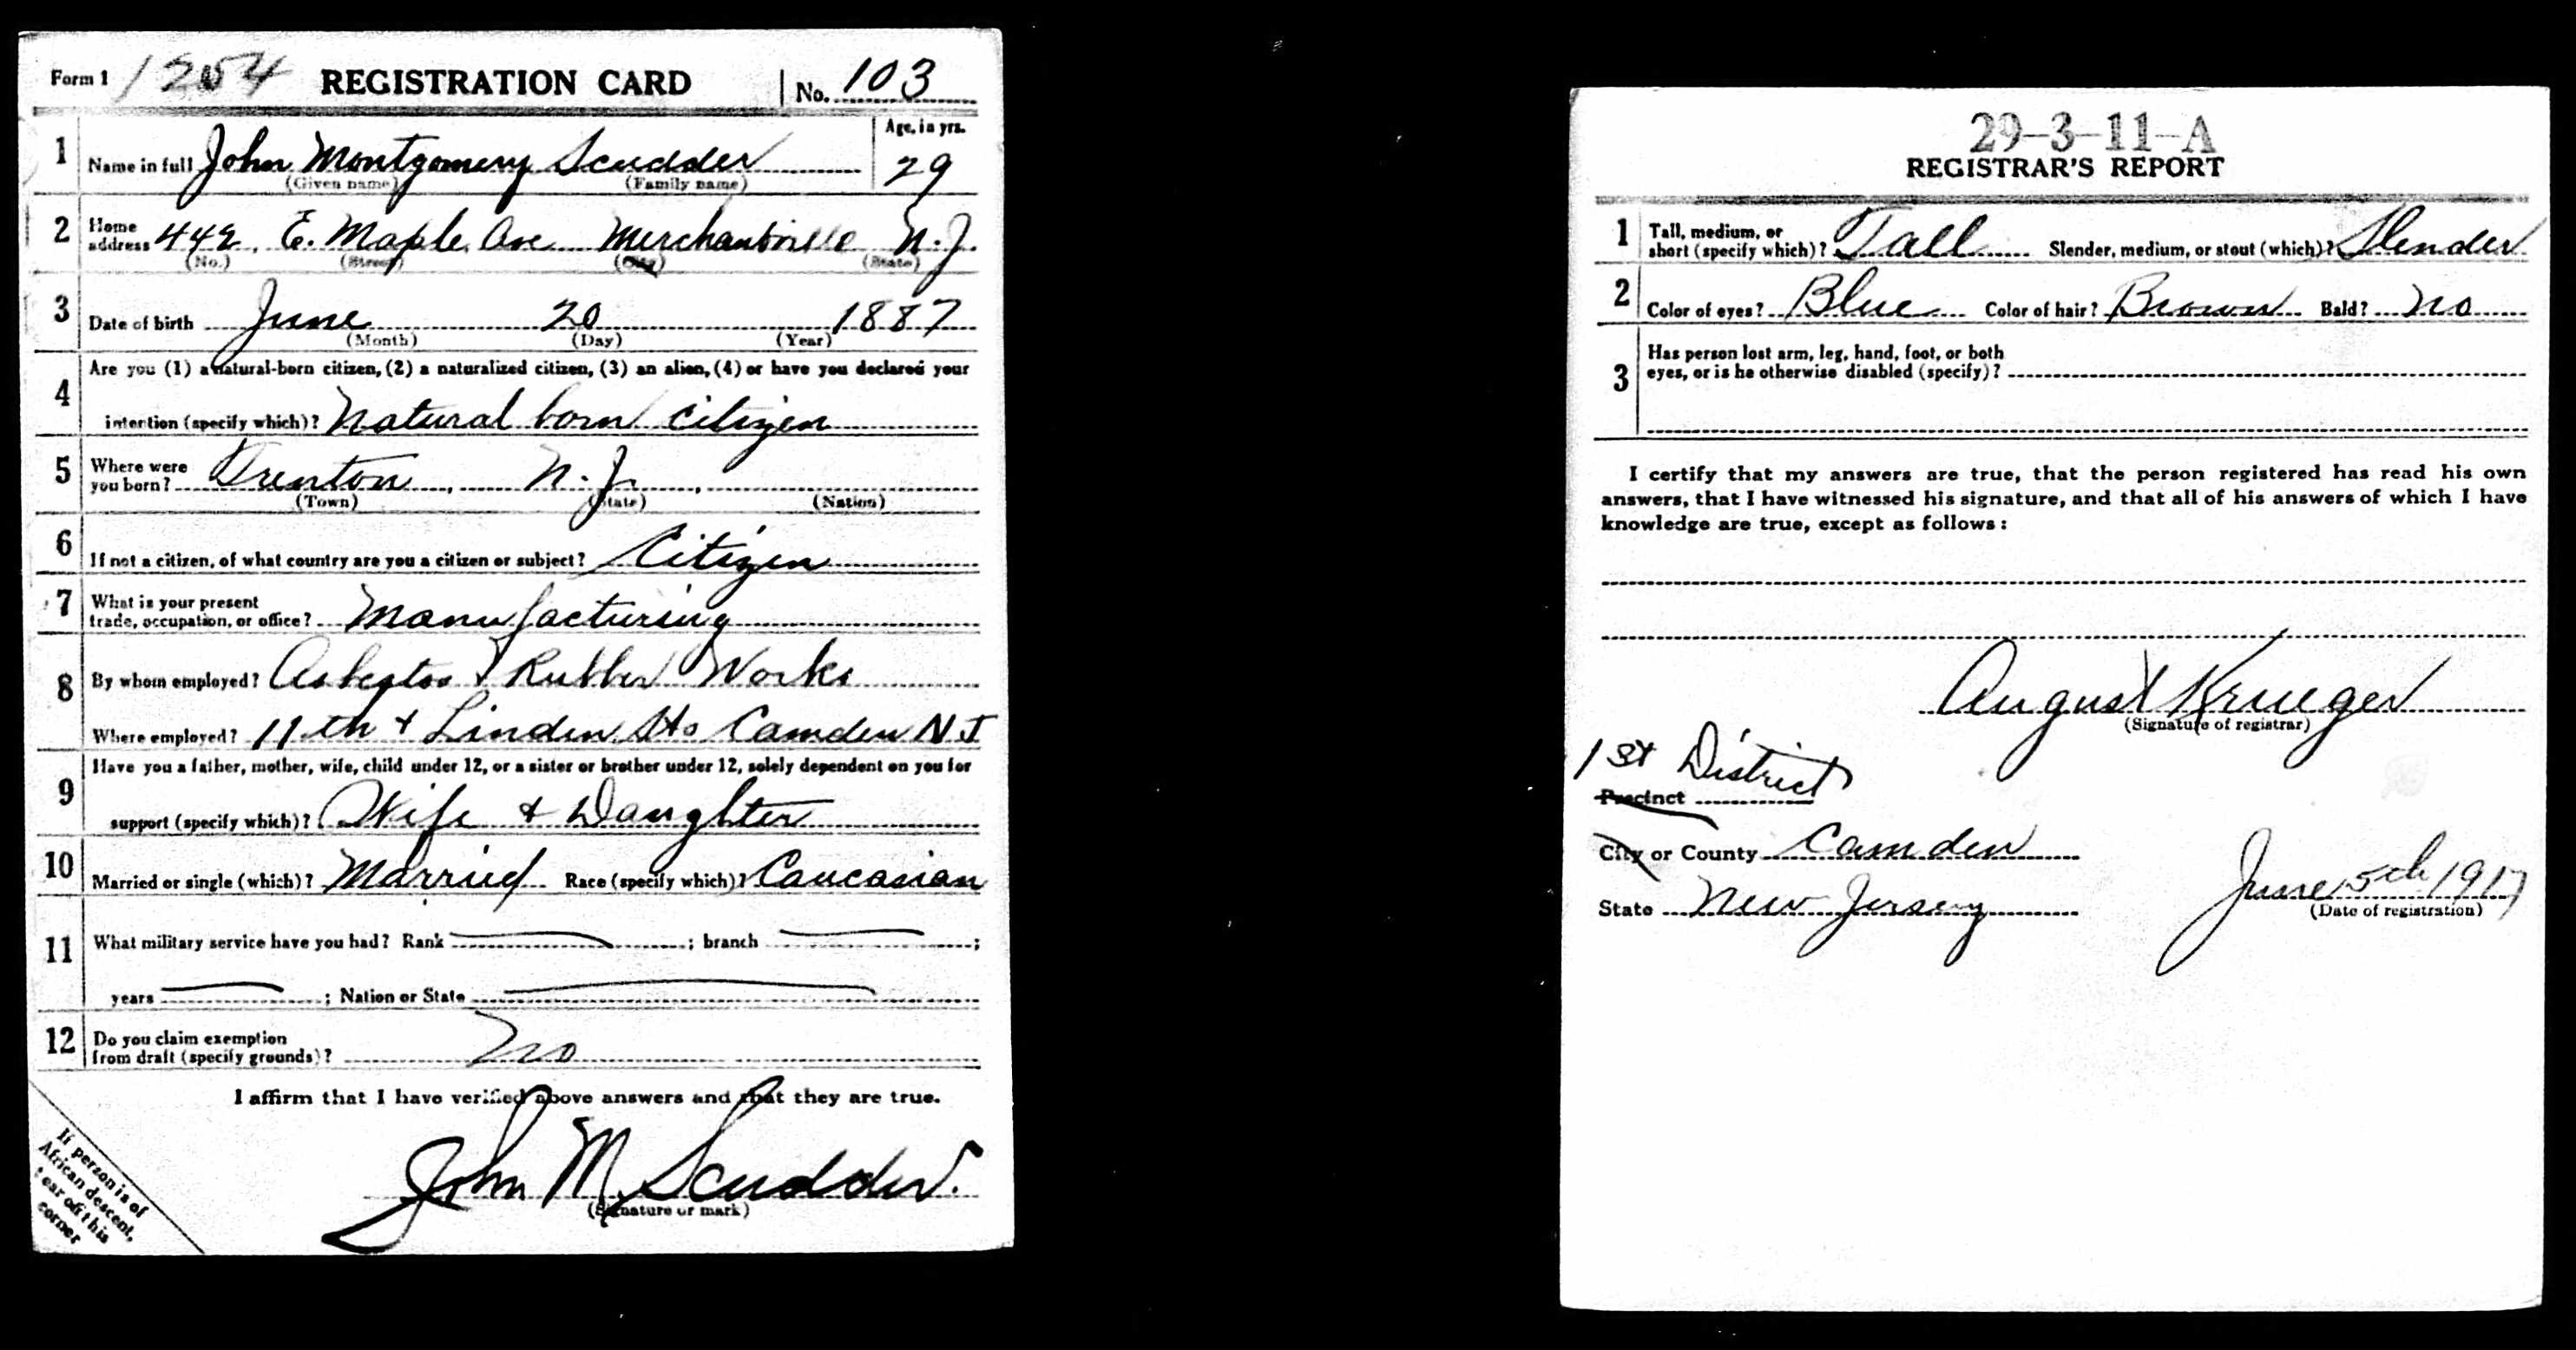 Form 1 1254 REGISTRATION CARD No. 103
1 Name in full John Montgomery Scudder Age, in yrs. 29
(Given name) (Family name)
2 Home address 442 E. Maple Ave Merchantville N.J.
(No.) (Street) (City) (State)
3 Date of birth June 20 1887
(Month) (Day) (Year)
4 Are you (1) a natural-born citizen, (2) a naturalized citizen, (3) an alien, (4) or have you declared your
intention (specify which)? Natural born citizen
5 Where were you born? Trenton, N.J.,
(Town) (State) (Nation)
6 If not a citizen, of what country are you a citizen or subject? Citizen
7 What is your present trade, occupation, or office? Manufacturing
8 By whom employed? Asbestos & Rubber Works
Where employed? 11th + Linden Sts Camden NJ
9 Have you a father, mother, wife, child under 12, or a sister or brother under 12, solely dependent on you for
support (specify which)? Wife + Daughter
10 Married or single (which)? Married Race (specify which)? Caucasian
11 What military service have you had? Rank ; branch ;
years ; Nation or State
12 Do you claim exemption from draft (specify grounds)? No
I affirm that I have verified above answers and that they are true.
John M Scudder.
(Signature or mark)
If person is of
African descent,
tear off this
corner
29-3-11-A
REGISTRAR'S REPORT
1 Tall, medium, or short (specify which)? Tall Slender, medium, or stout (which)? Slender
2 Color of eyes? Blue Color of hair? Brown Bald? No
3 Has person lost arm, leg, hand, foot, or both
eyes, or is he otherwise disabled (specify)?
I certify that my answers are true, that the person registered has read his own
answers, that I have witnessed his signature, and that all of his answers of which I have
knowledge are true, except as follows:
August Krueger
(Signature of registrar)
1st District
Precinct
City or County Camden
State New Jersey June 5th 1917
(Date of registration)